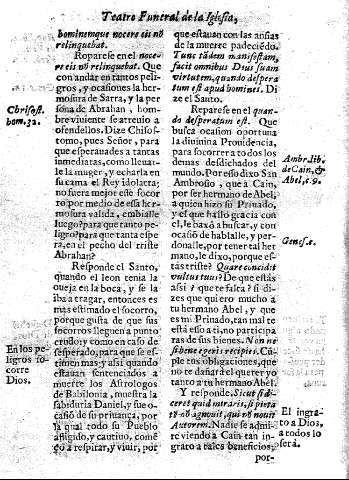 Teatro Funeral de la Iglesia,
hominemque nocere eis nõ
relinquebat.
Reparese en el noce-
re eis nõ relinquebat. Que
con andar en tantos peli-
gros, y ocasiones la her-
mosura de Sarra, y la per
sona de Abraham, no
hombre viviente se atreuio a
ofendellos. Dize Chisos-
tomo, pues Señor, para
que esperauades a tantas
inmediatas, como lleuar-
le la muger, y echarla en
su cama el Rey idolatra;
no fuera mejor esse socor
ro por medio de essa her-
mosura valida, embialle
luego? para que tanto pe-
ligro? para que tanta espe
ra, en el pecho del triste
Abrahan?
Responde el Santo,
quando el leon tenia la
oueja en la boca, y se la
iba a tragar, entonces es
mas estimado el socorro,
porque gusta de que sus
socorros lleguen a punto
crudo; y como en caso de
sesperado, para que se es-
timen mas: y assi quando
estauan sentenciados a
muerte los Astrologos
de Babilonia, muestra la
sabiduria Daniel, y fue o-
casió de su priuança, por
la qual todo su Pueblo
afligido, y cautiuo, come
ço a respirar, y viuir, por
Chrisost.
hom.32.
En los pe-
ligros so-
corre
Dios.
que estauan con las ansias
de la muerte padeciẽdo.
Tunc tãdem manifestam,
facit omnibus Deus suam
virtutem, quando despera
tum est apud homines. Di
ze el Santo.
Reparese en el quan-
do desperatum est. Que
busca ocasion oportuna
la diuina Prouidencia,
para socorrer a todos los
demas desdichados del
mundo. Por esso dixo San
Ambrosio, que a Cain,
por ser hermano de Abel,
a quien hizo su Priuado,
y el que hallò gracia con
el, le baxò a buscar, y con
ocasiõ de hablalle, y per-
donalle, por tener tal her
mano, le dixo, porque es-
tàs triste? Quare concidit
vultus tuus? De que estàs
assi? que te falta? si di-
zes que quiero mucho a
tu hermano Abel, y que
es mi Priuado, tan mal te
està esso a ti, no participa
ras de sus bienes. Non ne
si bene egeris recipies. Cũ-
ple tus obligaciones, que
no te dañarà el querer yo
tanto a tu hermano Abel.
Y responde. Sicut si di-
ceret quid miraris, si pieta
tẽ nõ agnouit, qui nõ nouit
Autorem. Nadie se admi-
re viendo a Cain tan in-
grato a tales beneficios,
por-
Ambr. lib.
de Cain, &
Abel, c.9.
Genes.c.
El ingra-
to a Dios,
a todos lo
serà.